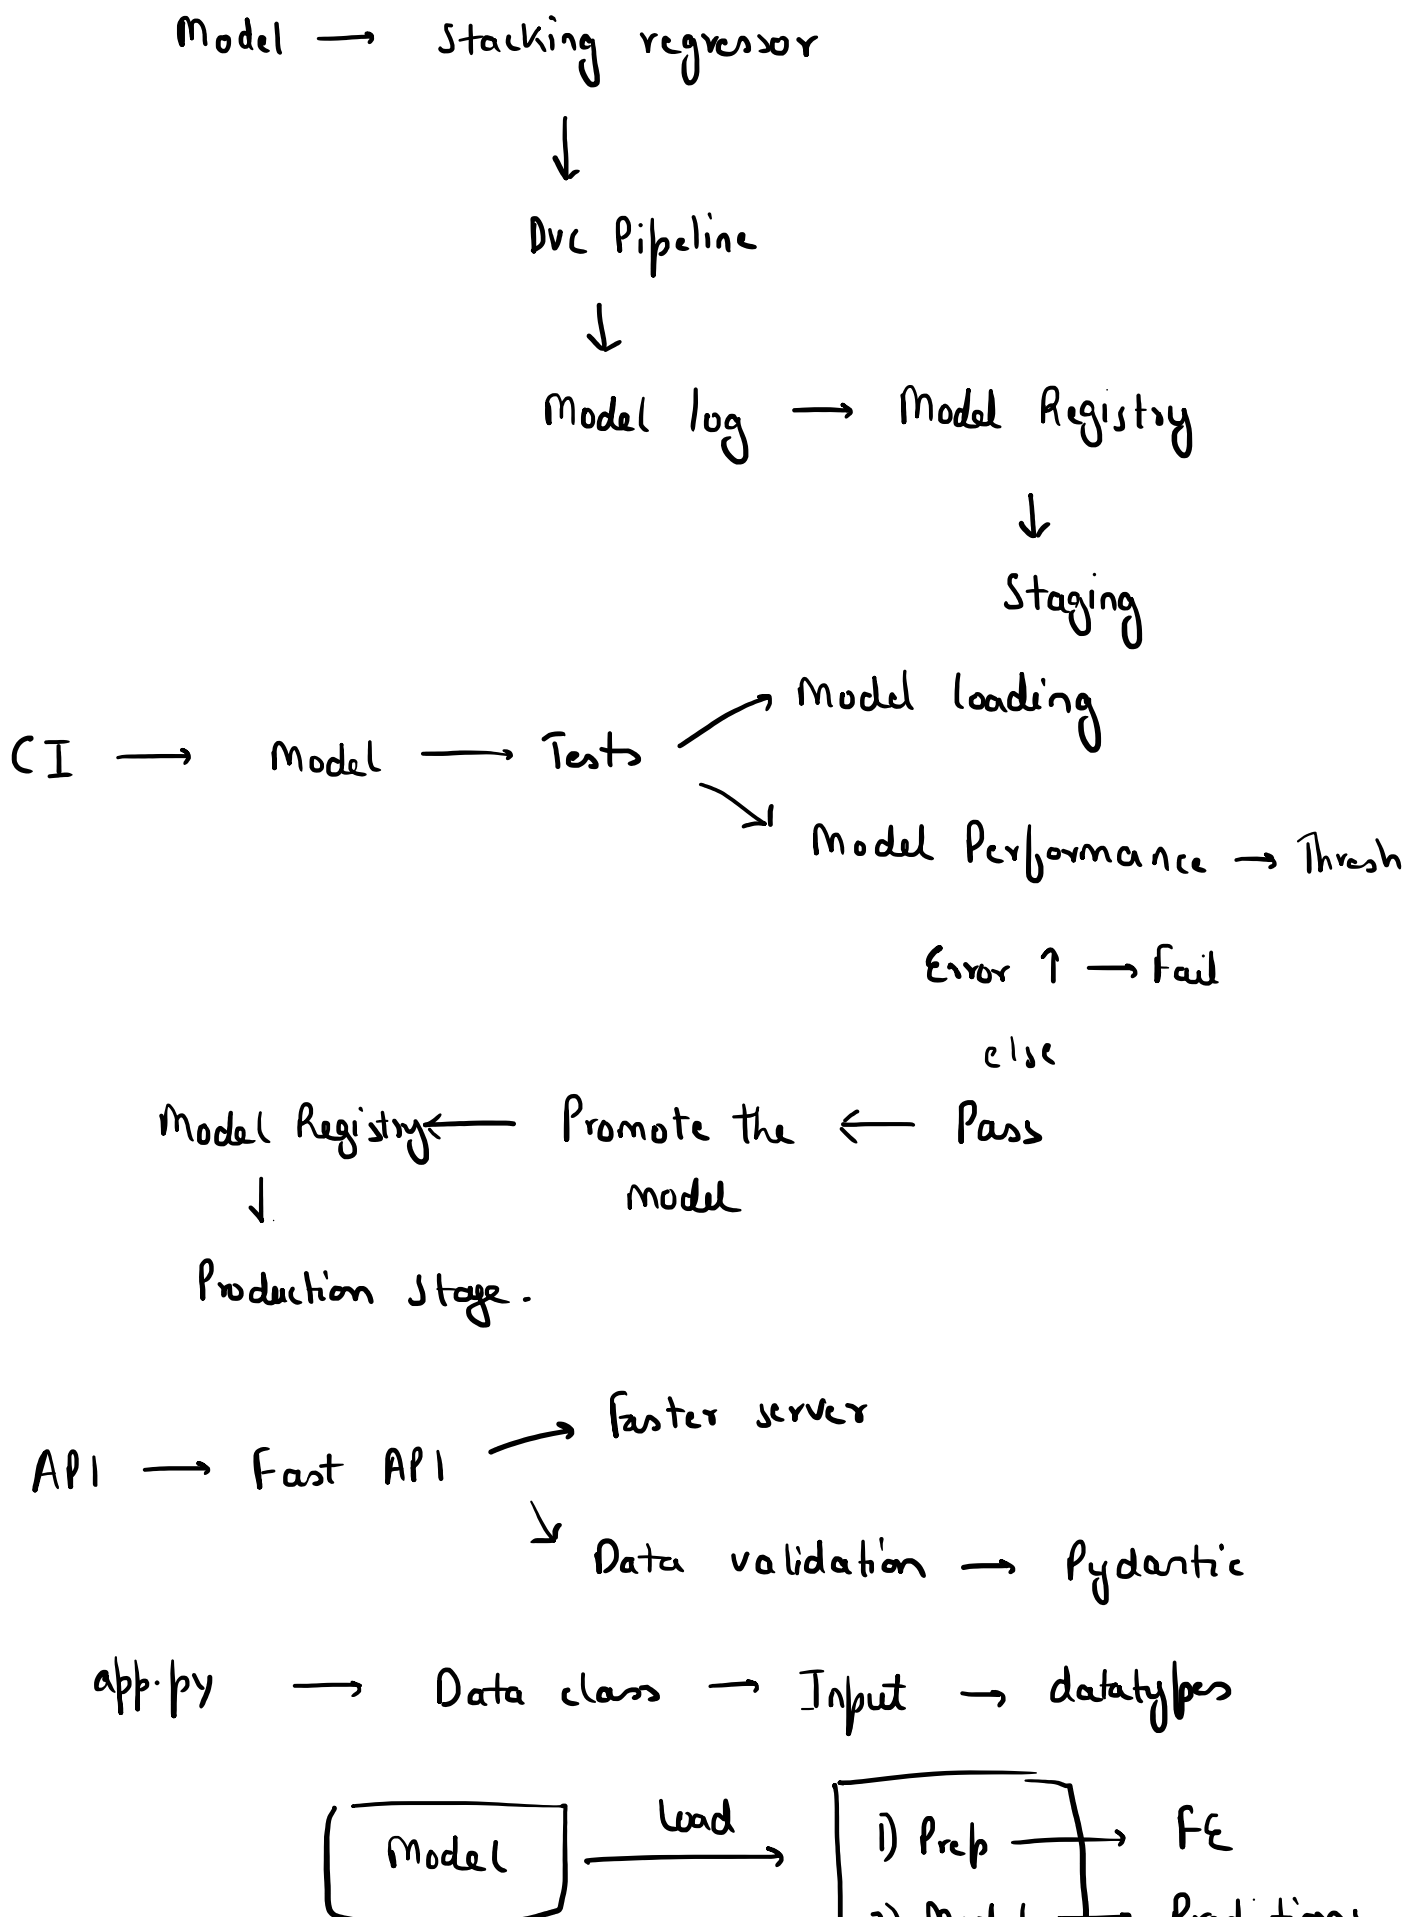 Model → Stacking regressor
↓
Dvc Pipeline
↓
Model log → Model Registry
↓
Staging
CI → Model → Tests → Model loading
→ Model Performance → Thresh
Error ↑ → Fail
else
Model Registry ← Promote the model ← Pass
↓
Production stage.
API → Fast API → Faster server
→ Data validation → Pydantic
app.py → Data class → Input → datatypes
Model load → 1) Prep → FE
2) Model → Predictions